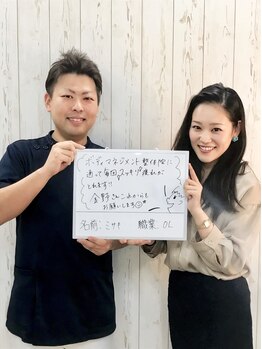 ボディマネジメント整体院に
通って毎回スッキリ疲れが
とれます!!
金野さんこれからも
お願いします
名前:ミサキ 職業:OL